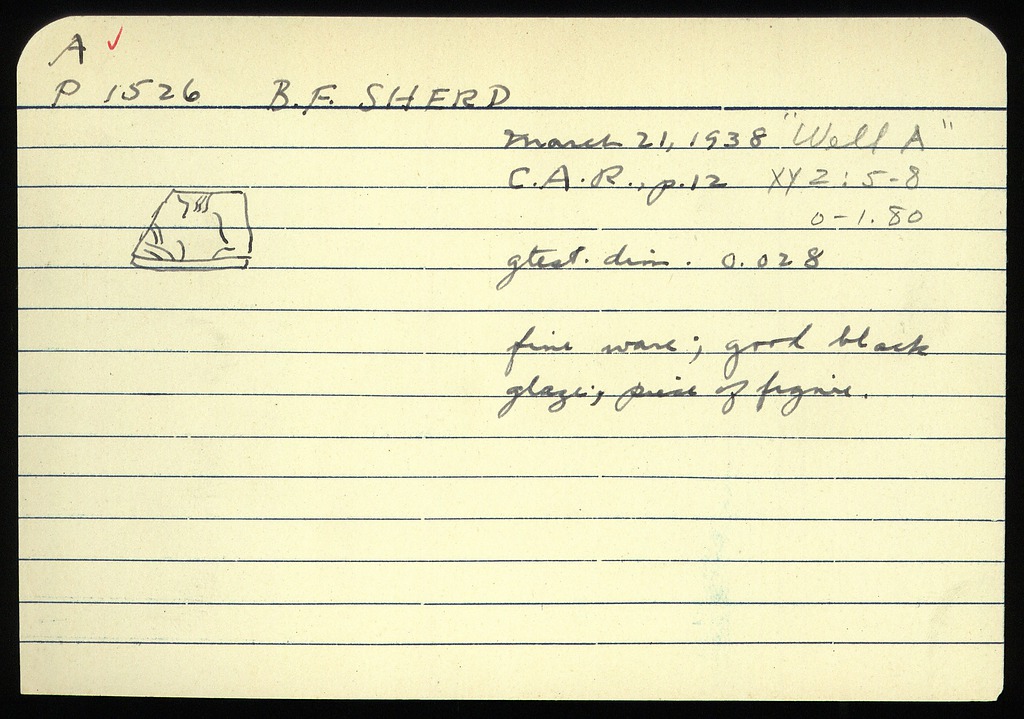 A ✓
P 1526 B.F. SHERD
March 21, 1938 "Well A"
C.A.R., p.12 XYZ: 5-8
0-1.80
gtest. dim. 0.028
fine ware; good black
glaze; piece of figure.